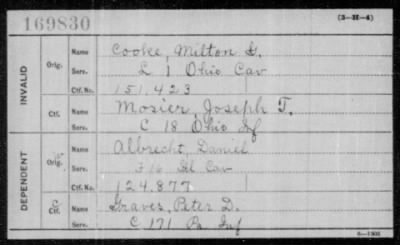 169830
(3-H-4)
INVALID
Orig.
Name Cooke, Milton G.
Serv. L 1 Ohio Cav
Ctf. No. 151,423
Ctf.
Name Mosier, Joseph T.
Serv. C 18 Ohio Inf
DEPENDENT
Orig.
Name Albrecht, Daniel
Serv. F 16 Ill Cav
Ctf. No. 124,877
C Ctf.
Name Graves, Peter D.
Serv. C 171 Pa Inf